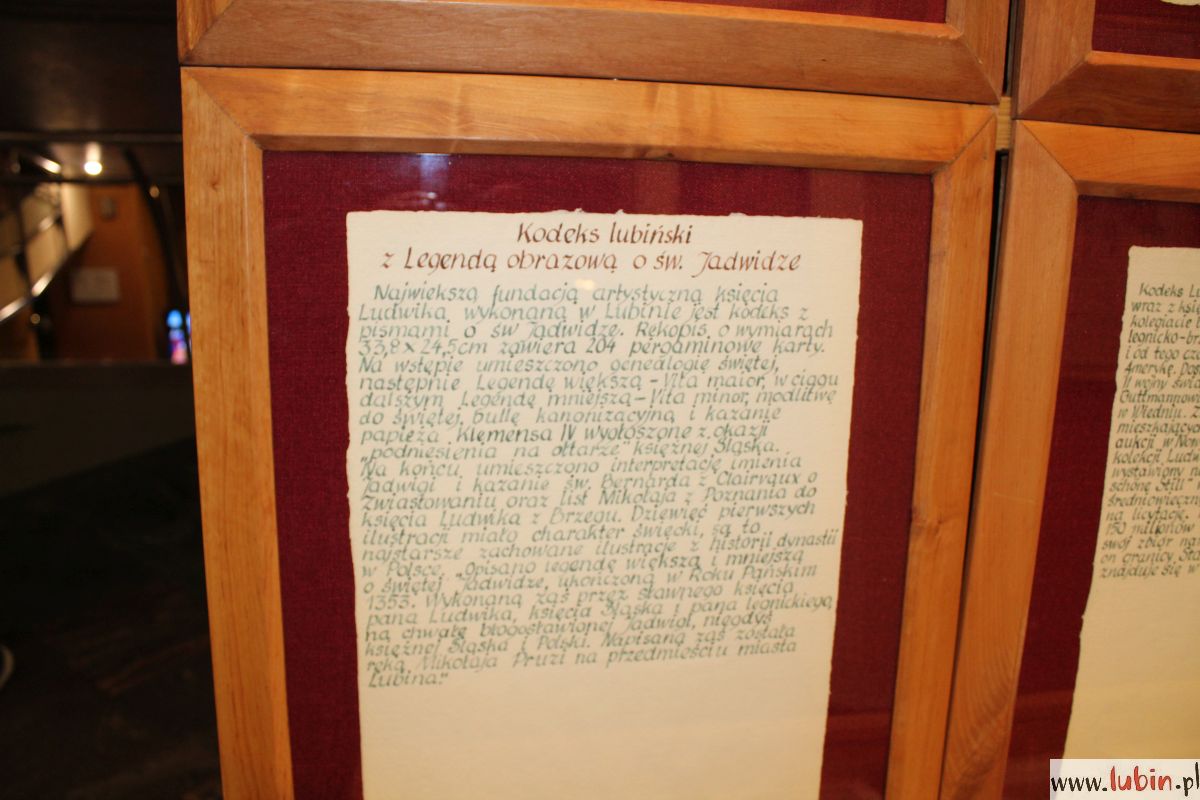 Kodeks lubiński
z Legendą obrazową o św. Jadwidze
Największą fundacją artystyczną księcia
Ludwika, wykonaną w Lubinie jest kodeks z
pismami o św Jadwidze. Rękopis, o wymiarach
33,8 x 24,5cm zawiera 204 pergaminowe karty.
Na wstępie umieszczono genealogię świętej,
następnie Legendę większą - Vita maior, w ciągu
dalszym Legendę mniejszą - Vita minor, modlitwę
do świętej, bullę kanonizacyjną i kazanie
papieża Klemensa IV wygłoszone z okazji
„podniesienia na ołtarze" księżnej Śląska.
Na końcu umieszczono interpretację imienia
Jadwigi i kazanie św. Bernarda z Clairvaux o
Zwiastowaniu oraz list Mikołaja z Poznania do
księcia Ludwika z Brzegu. Dziewięć pierwszych
ilustracji miało charakter świecki, są to
najstarsze zachowane ilustracje z historii dynastii
w Polsce. „Opisano legendę większą i mniejszą
o świętej Jadwidze, ukończoną w Roku Pańskim
1353. Wykonaną zaś przez sławnego księcia
pana Ludwika, księcia Śląska i pana legnickiego,
na chwałę błogosławionej Jadwigi, niegdyś
księżnej Śląska i Polski. Napisaną zaś została
ręką Mikołaja Pruzi na przedmieściu miasta
Lubina."
Kodeks Lu
wraz z księ
kolegiacie
legnicko-br
i od tego cza
Amerykę.
II wojny świ
Guttmannow
w Wiedniu.
mieszkających
aukcji w
kolekcji, Ludw
wystawiony
schöne Still"
średniowieczn
na licytację.
150 milionów
swój zbiór
on granicy
znajduje się w
www.lubin.pl